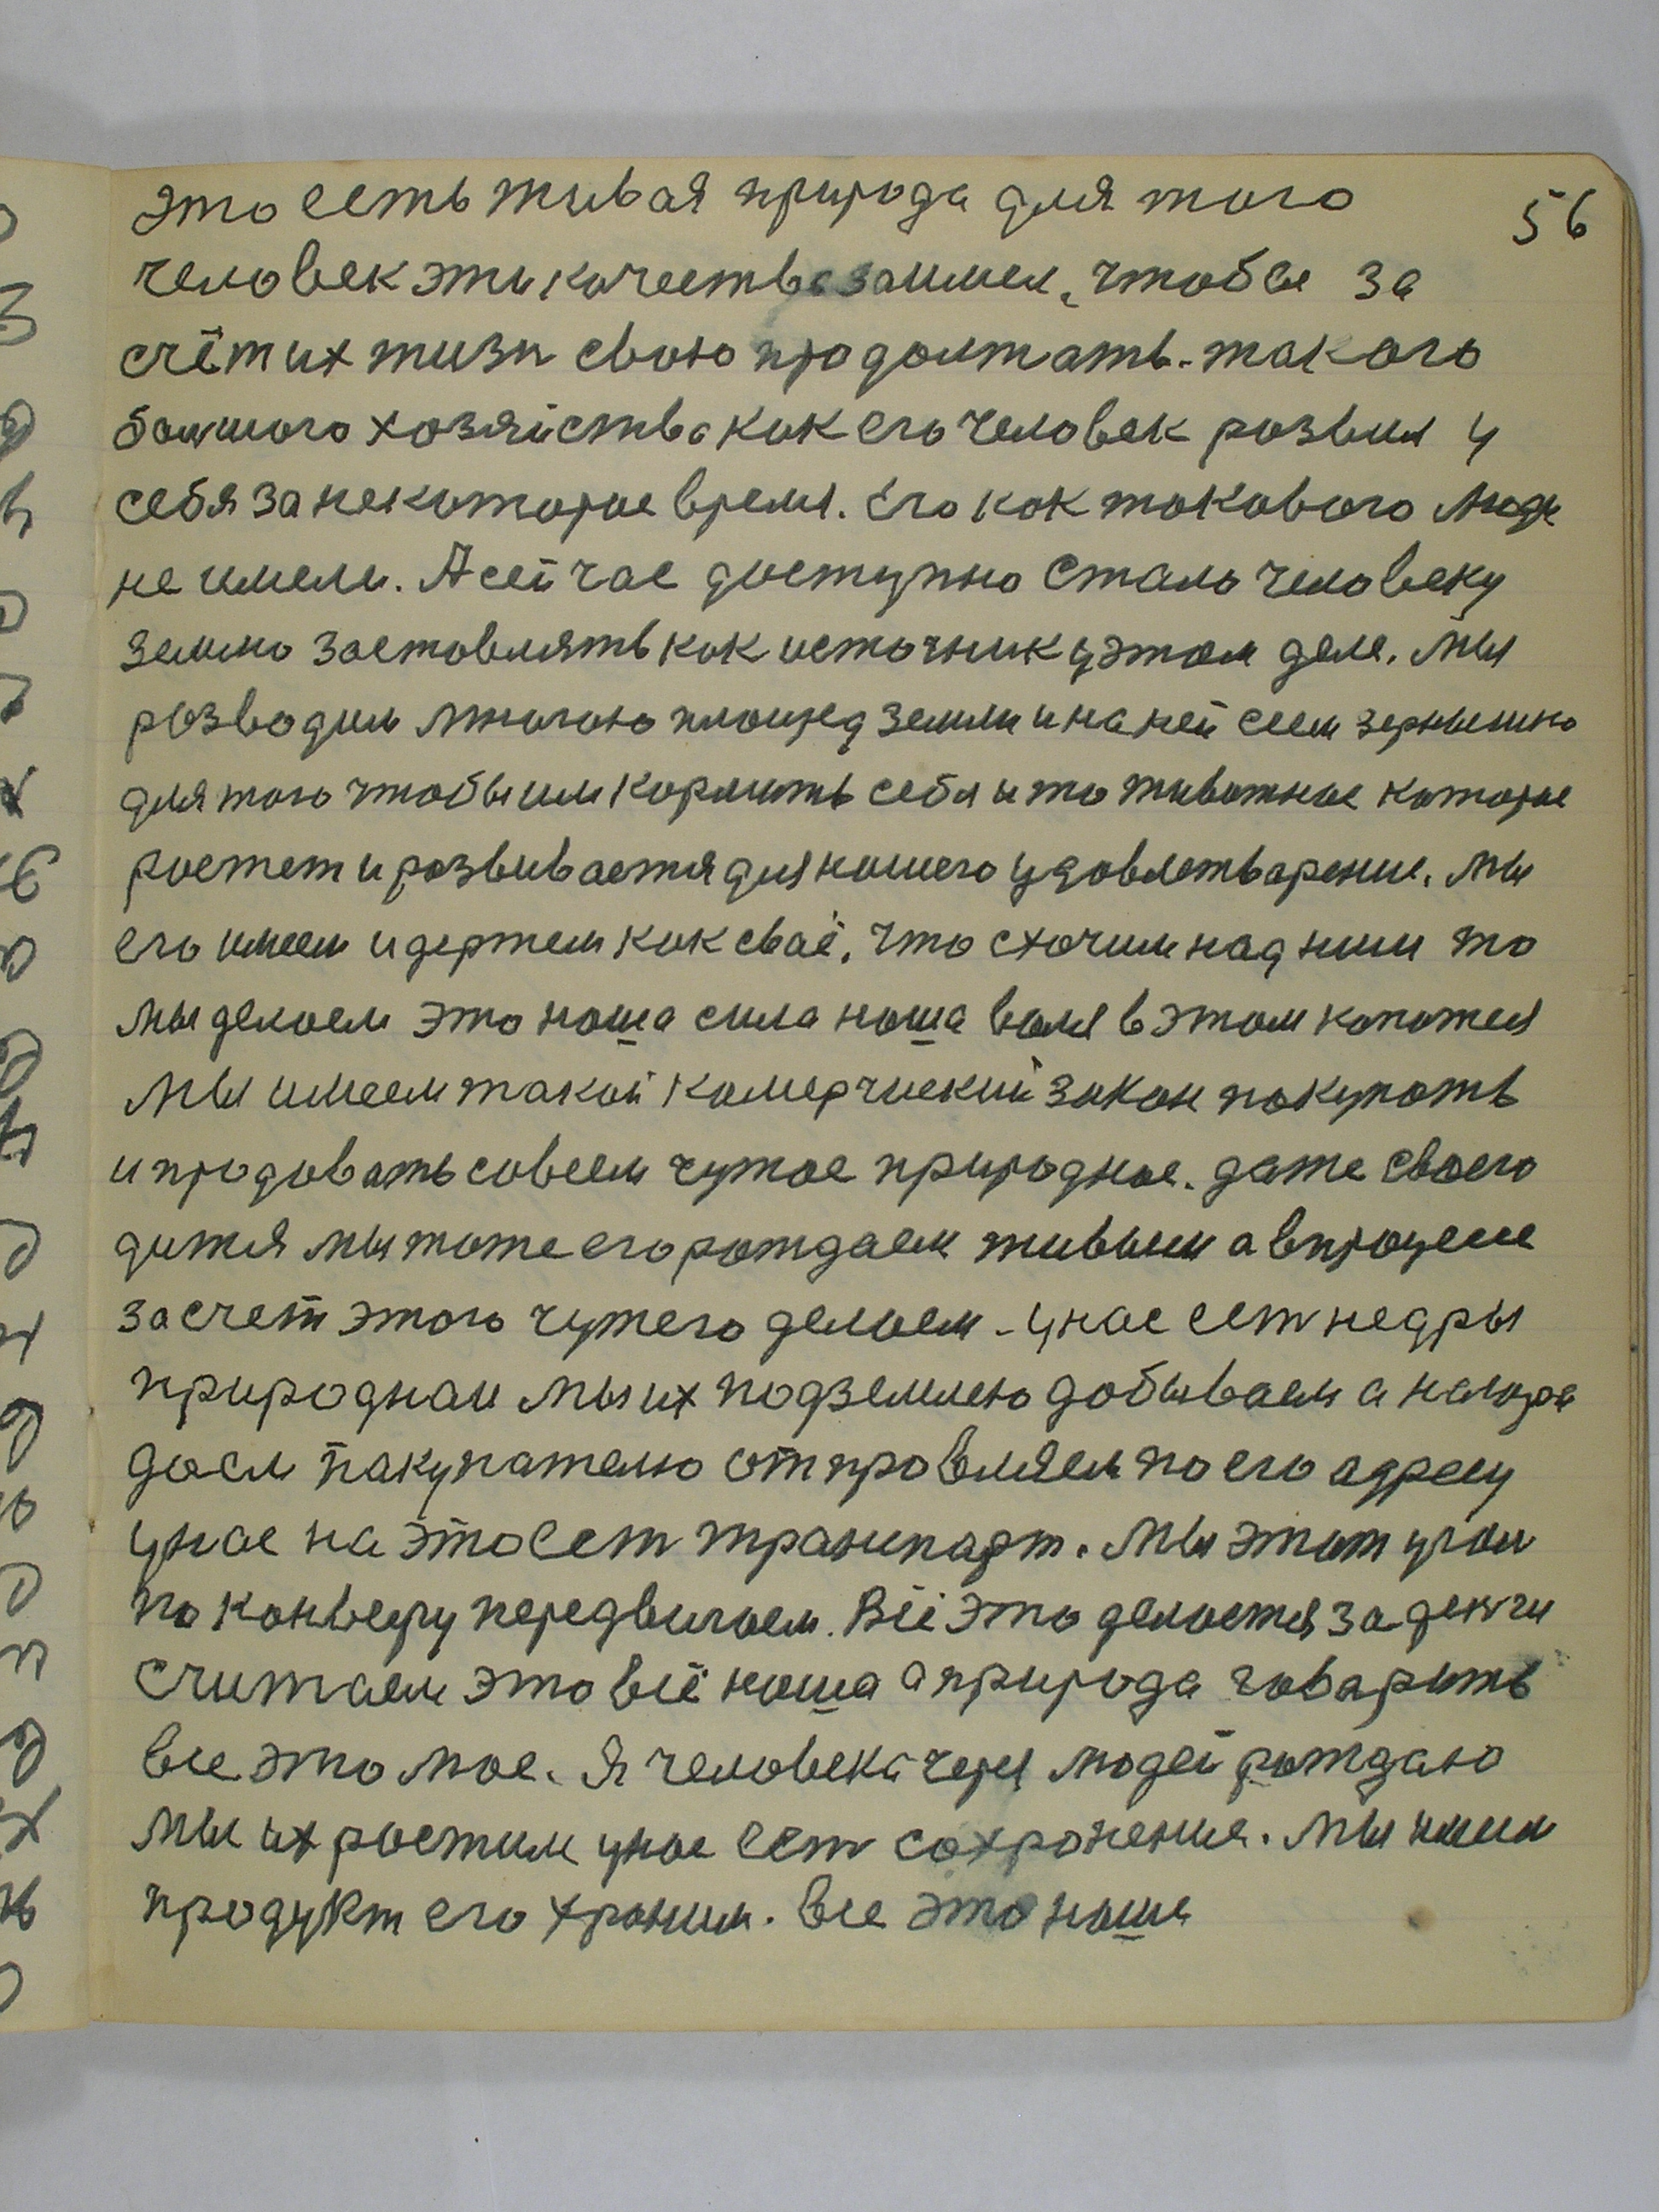 56
это есть живая природа для того
человек эти качества заимел, чтобы за
счёт их жизн свою продолжать. такого
большого хозяйства как его человек розвил у
себя за некоторое время. Его как токового люди
не имели. А сейчас доступно стало человеку
землю заставлять как источник у этом деле. Мы
розводим многою площед земли и на ней сеем зернышко
для того чтобы им кормить себя и то животное которое
ростет и розвивается для нашего удовлетварение. Мы
его имеем и держем как сваё. что схочим над ним то
мы делаем это наша сила наша воля в этом
мы имеем такой камерчиский закон покупать
и продовать совсем чужое природное. даже своего
дитя мы тоже его рождаем живым а в процесе
за счет этого чужего делаем. у нас ест недры
природнаи мы их под землею добываем а
даем пакупателю отпровляем по его адресу
у нас на это ест транспарт. Мы этот угол
по конверу передвигаем. Всё это делоется за денги
Считаем это всё наша а природа говарить
все это мое. Я человека через людей рождаю
мы их ростим у нас ест сохронения. Мы наш
продукт его храним. все это наше